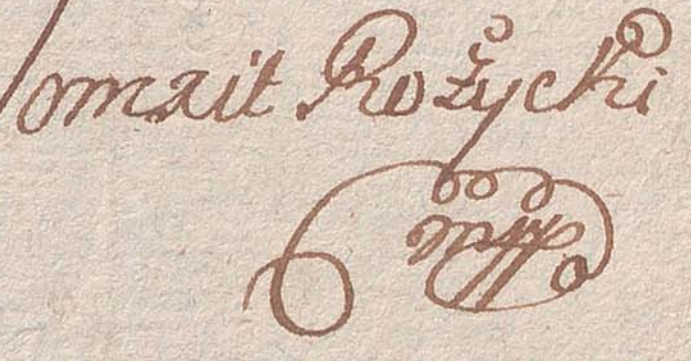 omait Rożycki
mpp